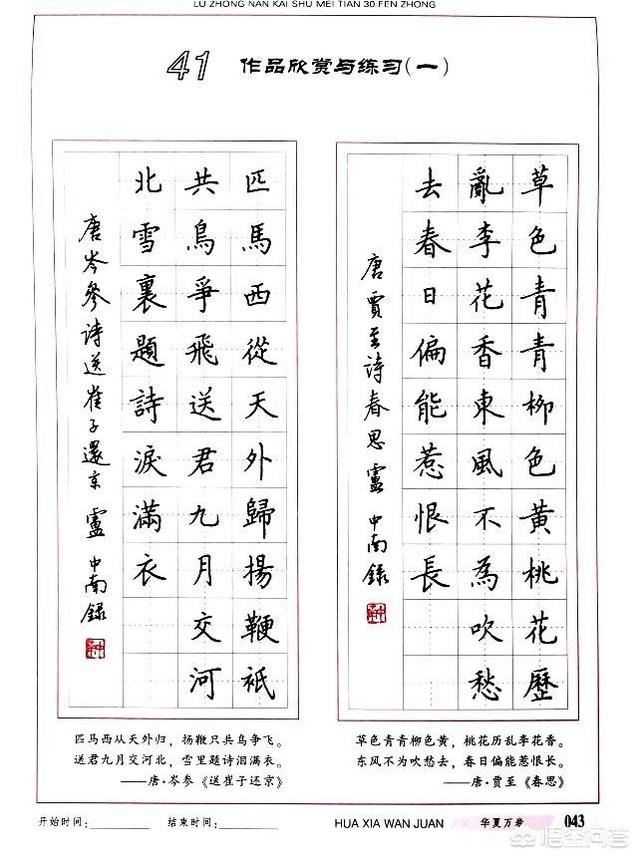 LU ZHONG NAN KAI SHU MEI TIAN 30 FEN ZHONG
41 作品欣赏与练习(一)
草色青青柳色黄桃花歷
亂李花香東風不為吹愁
去春日偏能惹恨長
唐賈至詩春思 盧中南錄
匹馬西從天外歸揚鞭衹
共鳥爭飛送君九月交河
北雪裏題詩淚滿衣
唐岑參詩送崔子還京 盧中南錄
匹马西从天外归，扬鞭只共鸟争飞。
送君九月交河北，雪里题诗泪满衣。
——唐·岑参《送崔子还京》
草色青青柳色黄，桃花历乱李花香。
东风不为吹愁去，春日偏能惹恨长。
——唐·贾至《春思》
开始时间：________ 结束时间：________
HUA XIA WAN JUAN 华夏万卷 043
悟空问答